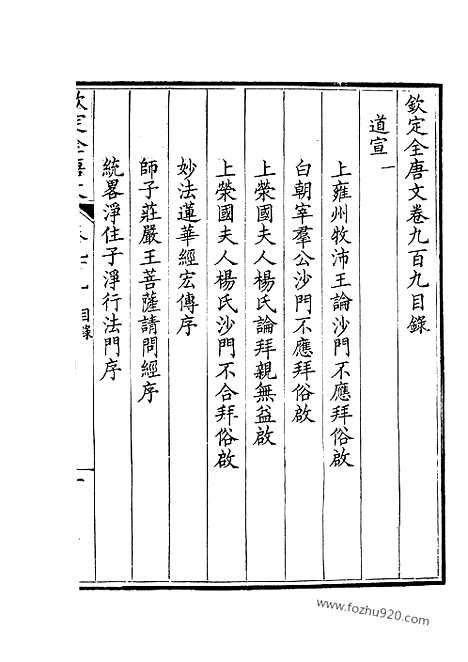 欽定全唐文卷九百九目錄
道宣一
上雍州牧沛王論沙門不應拜俗啟
白朝宰羣公沙門不應拜俗啟
上榮國夫人楊氏論拜親無益啟
上榮國夫人楊氏沙門不合拜俗啟
妙法蓮華經宏傳序
師子莊嚴王菩薩請問經序
統畧淨住子淨行法門序
欽定全唐文
目錄
www.fozhu920.com